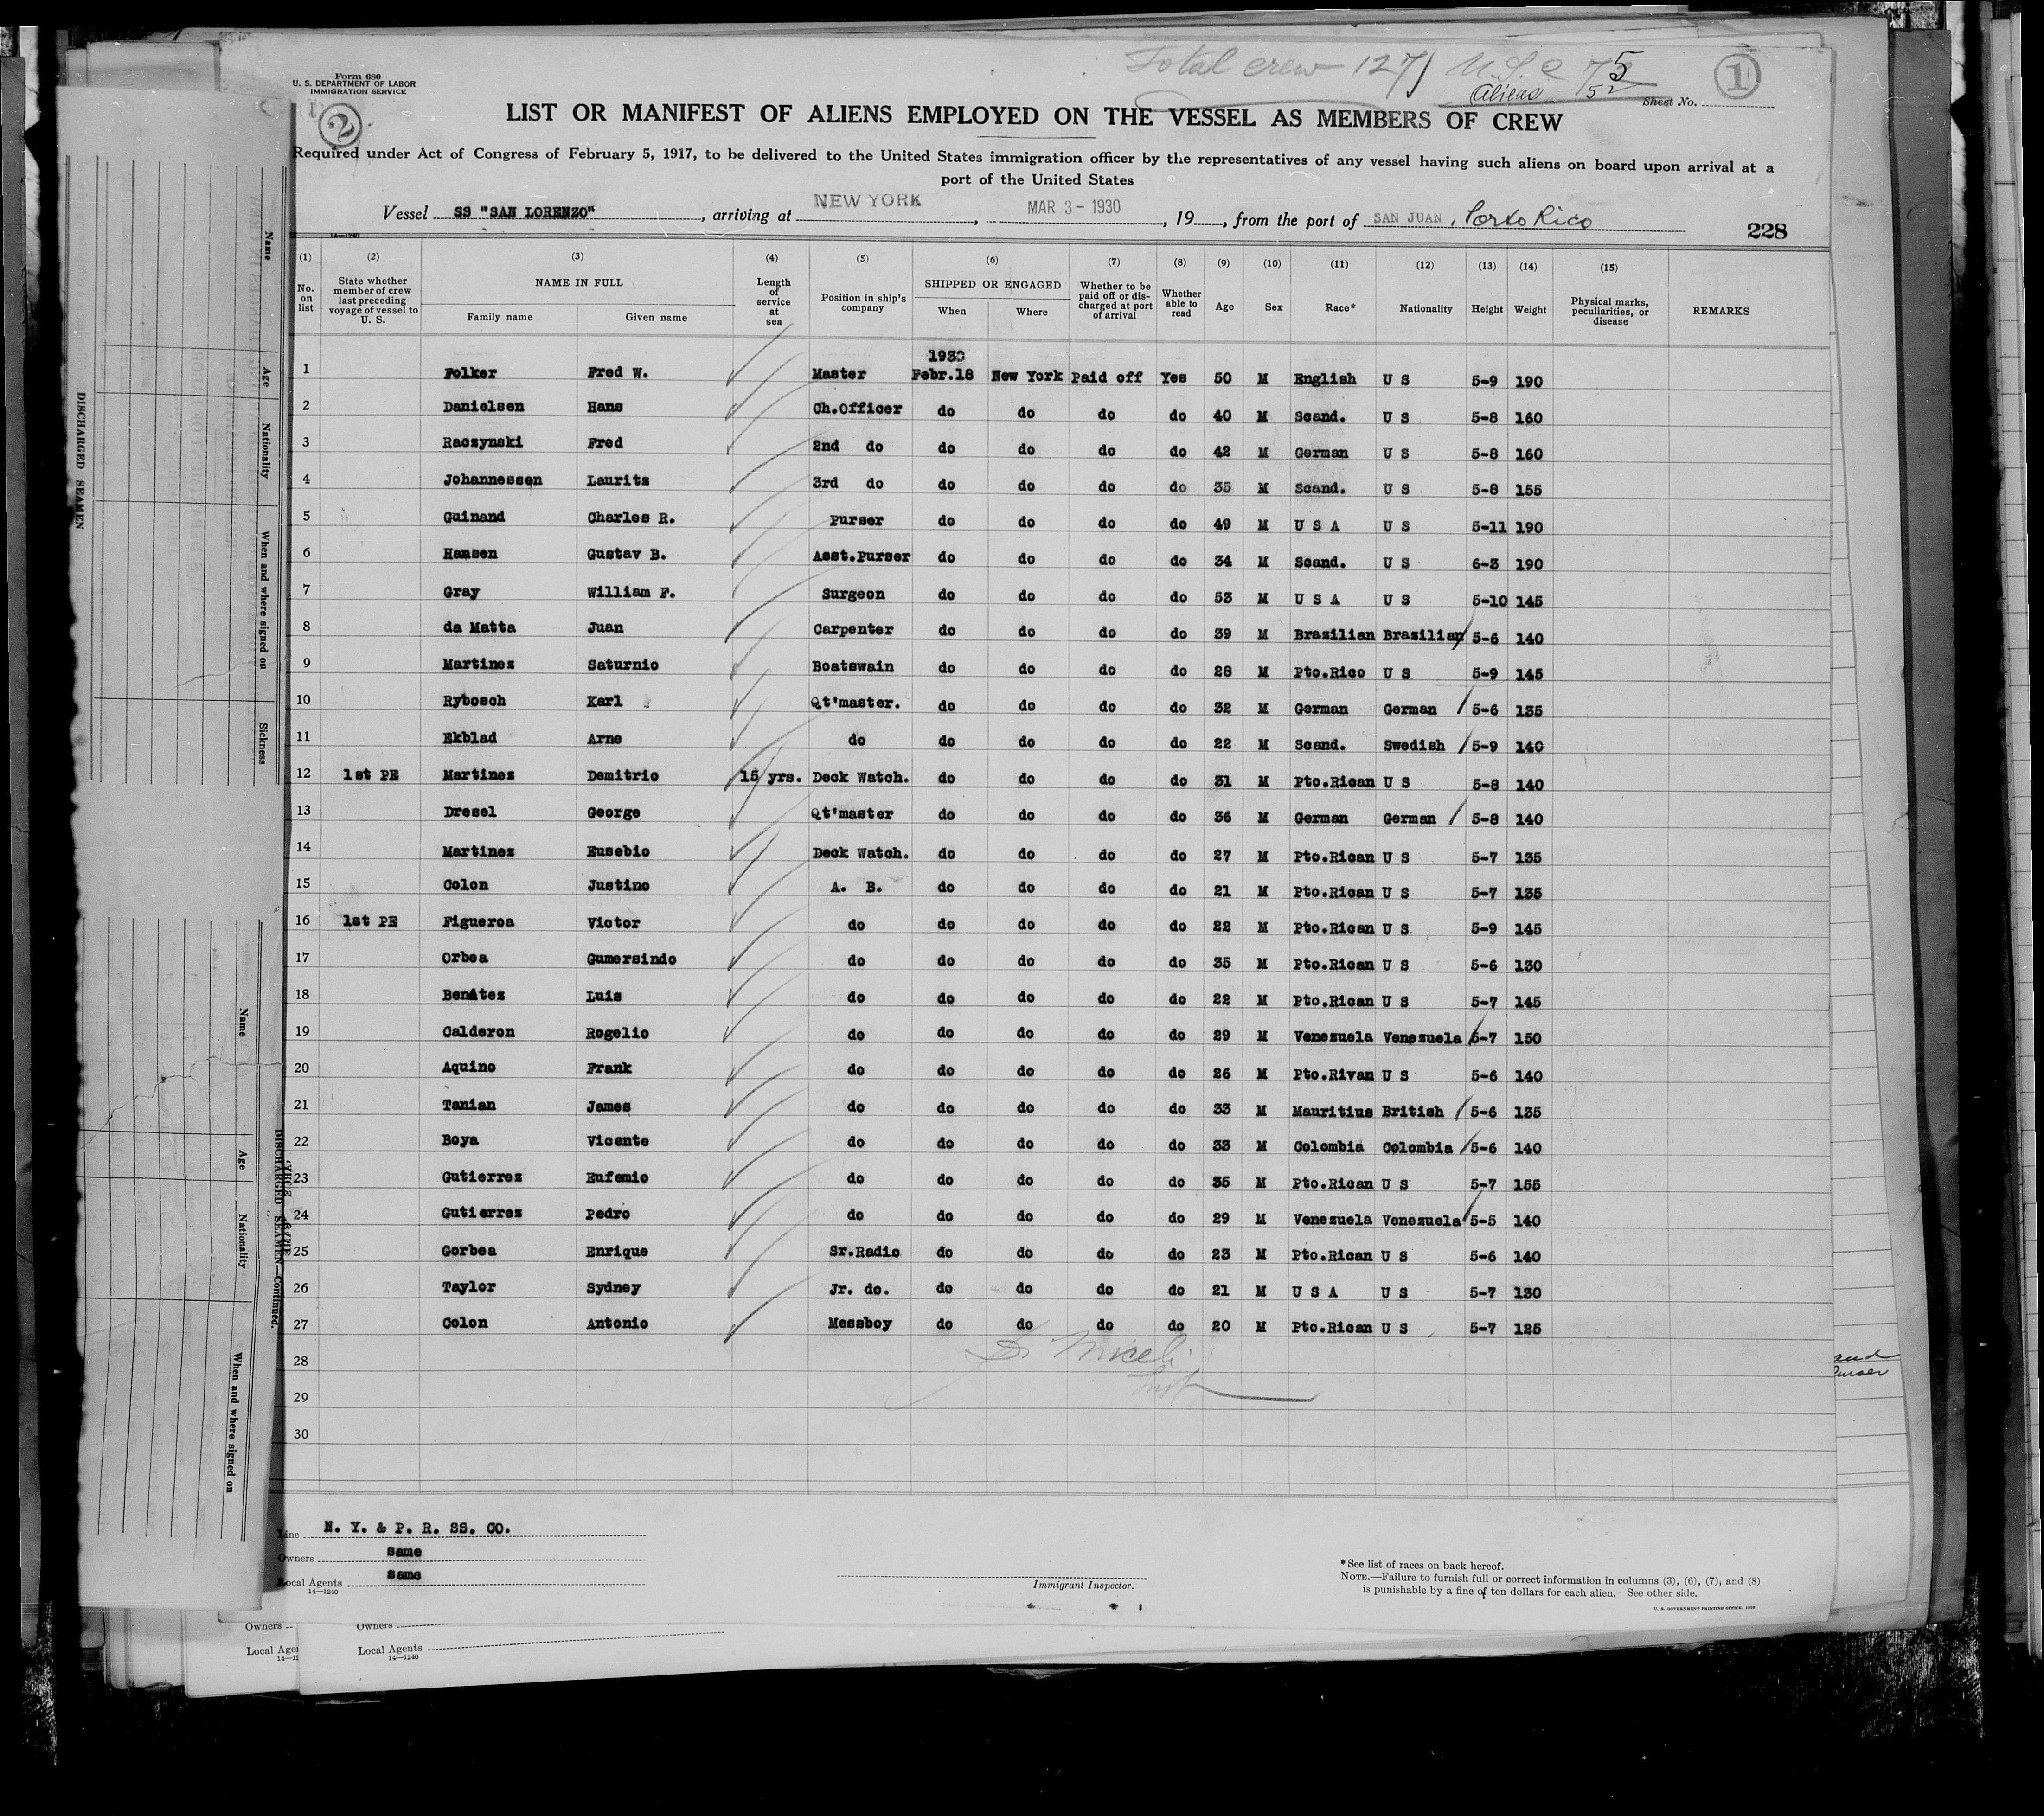 Total crew 127 U.S.C 75
Aliens 52
1
Form 680
U. S. DEPARTMENT OF LABOR
IMMIGRATION SERVICE
2
Sheet No.
LIST OR MANIFEST OF ALIENS EMPLOYED ON THE VESSEL AS MEMBERS OF CREW
Required under Act of Congress of February 5, 1917, to be delivered to the United States immigration officer by the representatives of any vessel having such aliens on board upon arrival at a
port of the United States
Vessel SS "SAN LORENZO", arriving at NEW YORK, MAR 3 - 1930, 19, from the port of SAN JUAN, Porto Rico
228
14—1240
(1) (2) (3) (4) (5) (6) (7) (8) (9) (10) (11) (12) (13) (14) (15)
No. on list
State whether member of crew last preceding voyage of vessel to U. S.
NAME IN FULL
Family name Given name
Length of service at sea
Position in ship's company
SHIPPED OR ENGAGED
When Where
Whether to be paid off or discharged at port of arrival
Whether able to read
Age Sex Race* Nationality Height Weight
Physical marks, peculiarities, or disease
REMARKS
1930
1 Folker Fred W. Master Febr.18 New York Paid off Yes 50 M English U S 5-9 190
2 Danielsen Hans Ch.Officer do do do do 40 M Scand. U S 5-8 160
3 Raczynski Fred 2nd do do do do do 42 M German U S 5-8 160
4 Johannessen Lauritz 3rd do do do do do 35 M Scand. U S 5-8 155
5 Guinand Charles R. Purser do do do do 49 M U S A U S 5-11 190
6 Hansen Gustav B. Asst.Purser do do do do 34 M Scand. U S 6-3 190
7 Gray William F. Surgeon do do do do 53 M U S A U S 5-10 145
8 da Matta Juan Carpenter do do do do 39 M Brazilian Brazilian 5-6 140
9 Martinez Saturnio Boatswain do do do do 28 M Pto.Rico U S 5-9 145
10 Rybosch Karl Qt'master. do do do do 32 M German German 5-6 135
11 Ekblad Arne do do do do do 22 M Scand. Swedish 5-9 140
12 1st PE Martinez Demitrio 15 yrs. Deck Watch. do do do do 31 M Pto.Rican U S 5-8 140
13 Dresel George Qt'master do do do do 36 M German German 5-8 140
14 Martinez Eusebio Deck Watch. do do do do 27 M Pto.Rican U S 5-7 135
15 Colon Justino A. B. do do do do 21 M Pto.Rican U S 5-7 135
16 1st PE Figueroa Victor do do do do do 22 M Pto.Rican U S 5-9 145
17 Orbea Gumersindo do do do do do 35 M Pto.Rican U S 5-6 130
18 Benitez Luis do do do do do 22 M Pto.Rican U S 5-7 145
19 Calderon Rogelio do do do do do 29 M Venezuela Venezuela 5-7 150
20 Aquino Frank do do do do do 26 M Pto.Rivan U S 5-6 140
21 Tanian James do do do do do 33 M Mauritius British 5-6 135
22 Boya Vicente do do do do do 33 M Colombia Colombia 5-6 140
23 Gutierrez Eufemio do do do do do 35 M Pto.Rican U S 5-7 155
24 Gutierrez Pedro do do do do do 29 M Venezuela Venezuela 5-5 140
25 Gorbea Enrique Sr.Radio do do do do 23 M Pto.Rican U S 5-6 140
26 Taylor Sydney Jr. do. do do do do 21 M U S A U S 5-7 130
27 Colon Antonio Messboy do do do do 20 M Pto.Rican U S 5-7 125
28
29
30
Line N. Y. & P. R. SS. CO.
Owners same
Local Agents same
14—1240
Immigrant Inspector.
* See list of races on back hereof.
NOTE.—Failure to furnish full or correct information in columns (3), (6), (7), and (8)
is punishable by a fine of ten dollars for each alien. See other side.
U. S. GOVERNMENT PRINTING OFFICE, 1929
Owners
Owners
Local Agents
14—1240
DISCHARGED SEAMEN
Name
Age
Nationality
When and where signed on
Sickness
DISCHARGED SEAMEN—Continued.
Name
Age
Nationality
When and where signed on
and
Purser